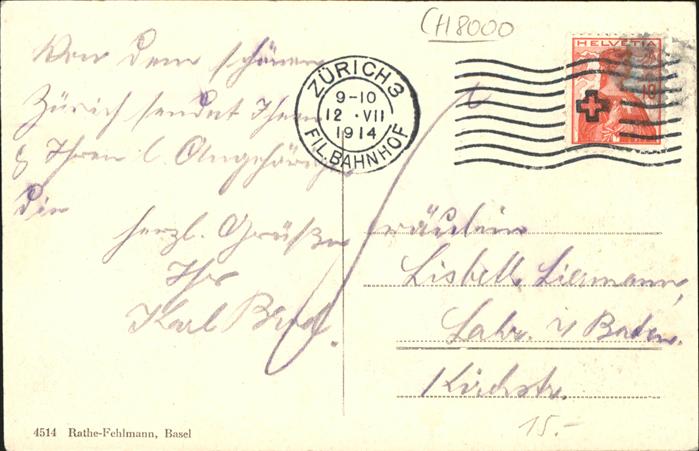 CH8000
HELVETIA
ZÜRICH 3
9-10
12 · VII
1914
FIL. BAHNHOF
Von dem schönen
Zürich sendet Ihnen
& Ihren l. Angehörigen
die
herzl. Grüße
Ihr
Karl
Fräulein
Lisbeth
Lahr i/ Baden.
Kirchstr.
15.-
4514 Rathe-Fehlmann, Basel